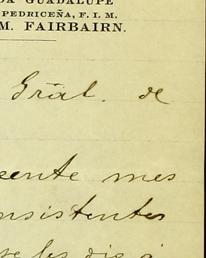 DA GUADALUPE
PEDRICEÑA, F. I. M.
M. FAIRBAIRN.
Gral. de
sente mes
nsistentes